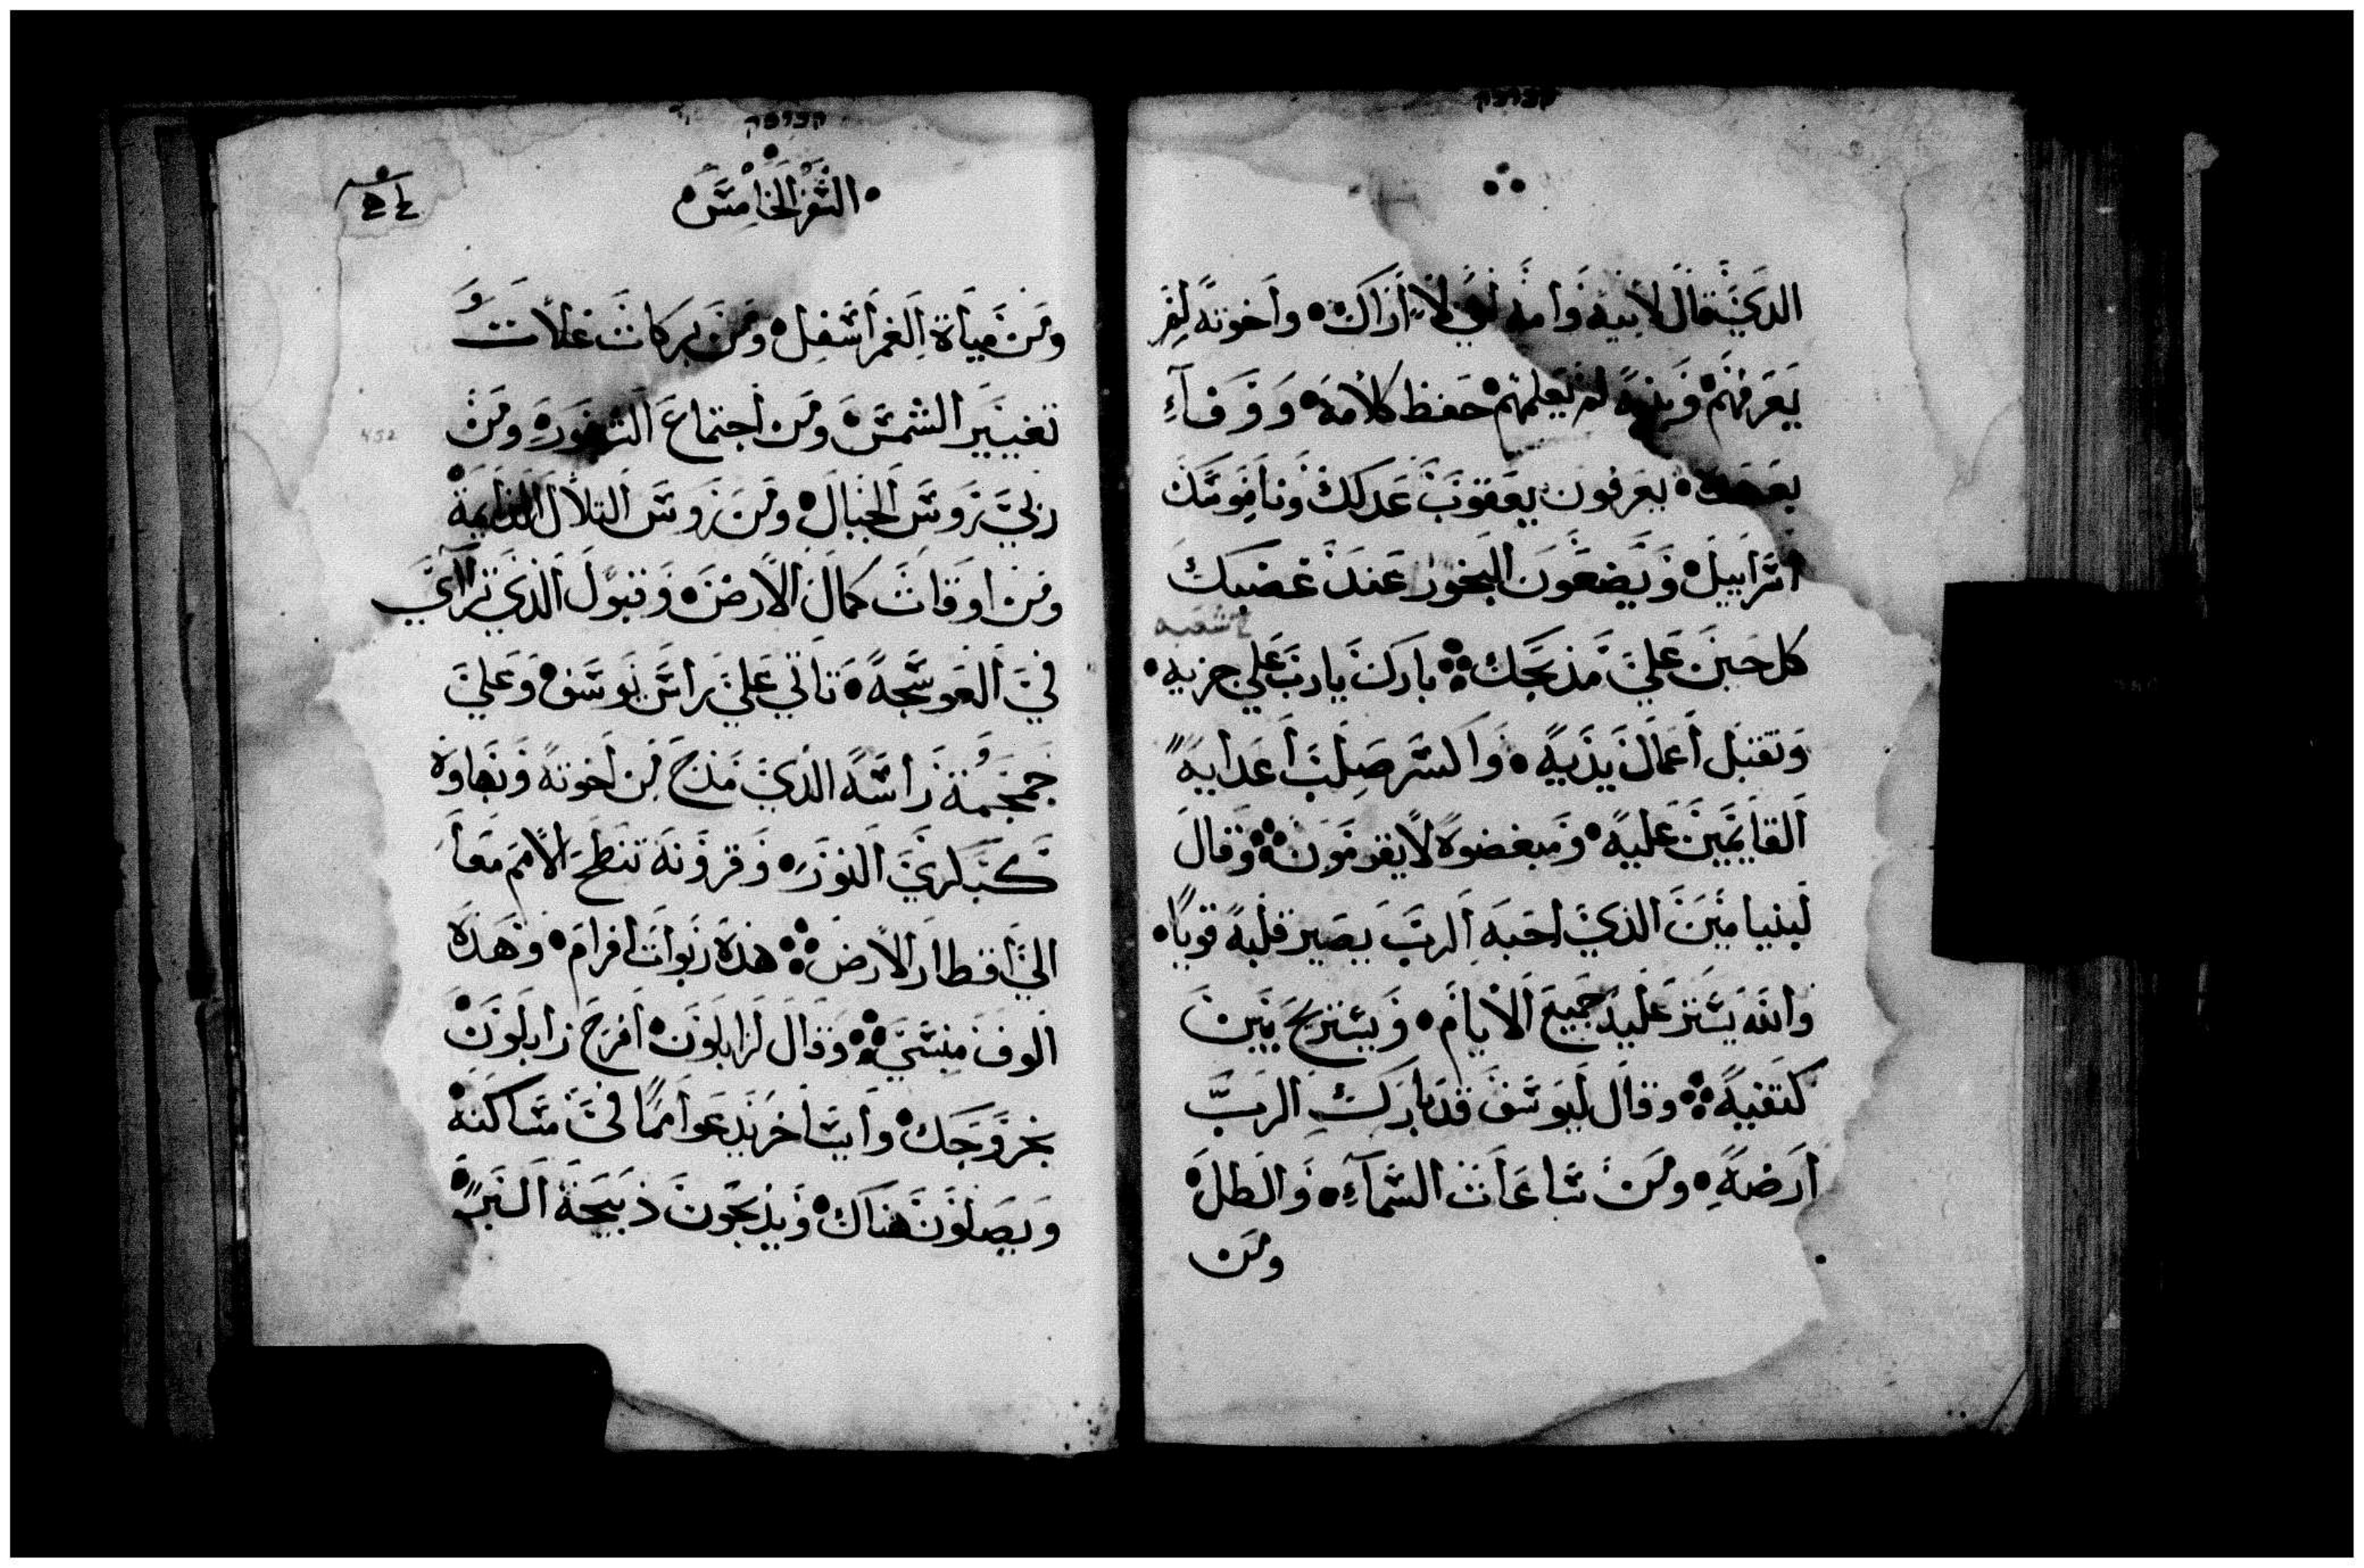 الدي قال لابيه وامه اني لا اراك واخوته لم
يعرفهم وبنيه لم يعلمهم حفظ كلامك ووفاء
بعهدك يعرفون يعقوب عدلك وناموسك
اسراييل ويضعون البخور عند غضبك
كل حين علي مذبحك بارك يارب علي حزبه
وتقبل اعمال يديه واكسر صلب اعدايه
القايمين عليه ومبغضوه لا يقومون وقال
لبنيامين الذي احبه الرب يصير قلبه قويا
والله يستر عليه جميع الايام ويستريح بين
كتفيه وقال ليوسف قد بارك الرب
ارضه ومن ساعات السماء والطل
ومن
السفر الخامس
ومن مياة الغمر اسفل ومن بركات غلات
تغيير الشمس ومن اجتماع الشهور ومن
ربي روس الجبال ومن روس التلال الدايمة
ومن اوقات كمال الارض وقبول الذي ترااي
في العوسجه تاتي علي راس يوسف وعلي
جمجمة راسه الذي مدح من اخوته وبهاوه
كبكري الثور وقرونه تنطح الامم معا
الي اقطار الارض هذه ربوات افرام وهذه
الوف منسي وقال لزابلون افرح زابلون
بخروجك وايساخر يدعوا امما في مساكنه
ويصلون هناك ويذبحون ذبيحة البر